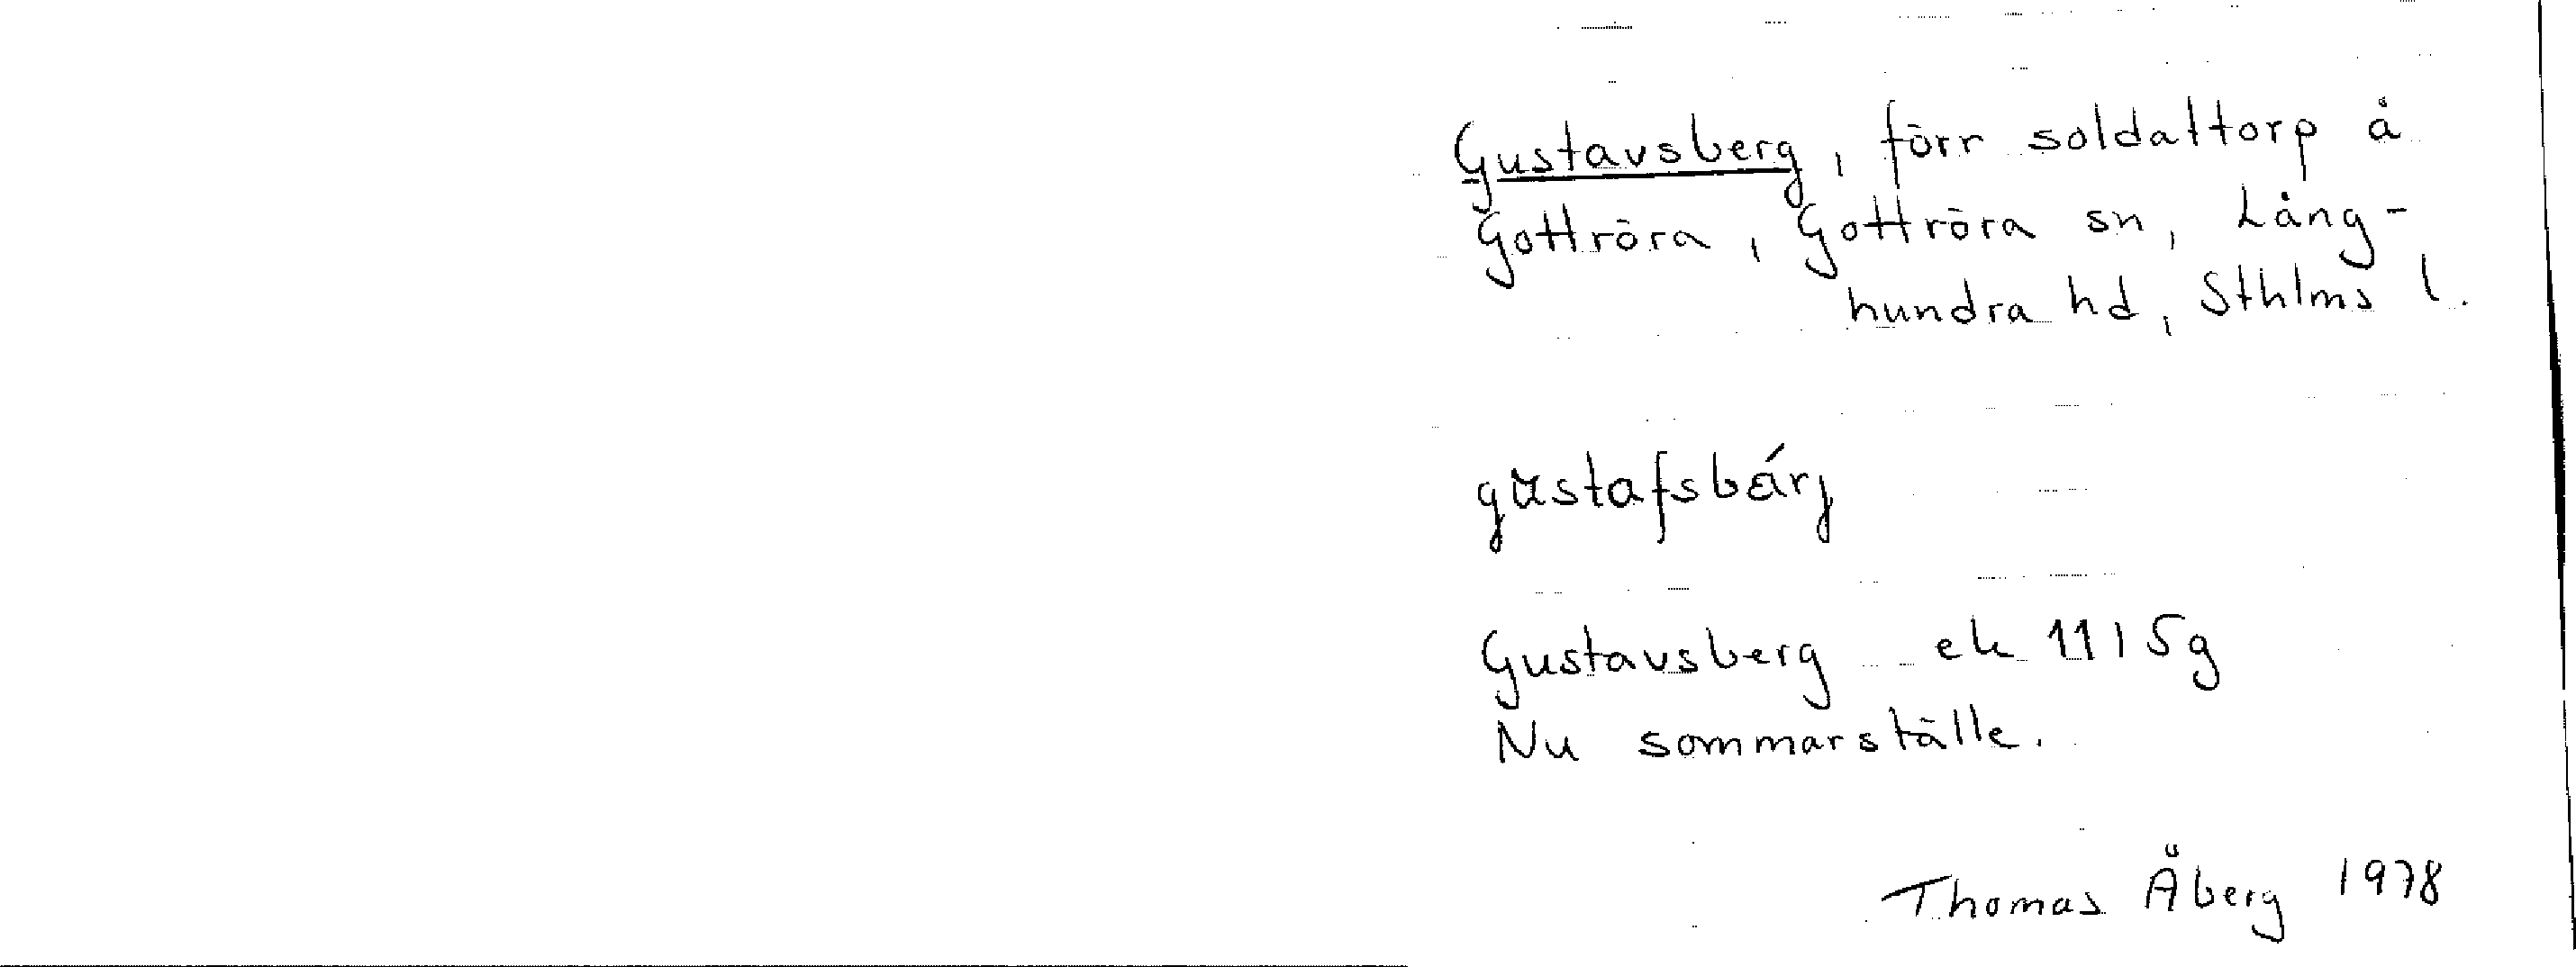 Gustavsberg, förr soldattorp å
Gottröra, Gottröra sn, Lång-
hundra hd, Sthlms l.
gustafsbárj
Gustavsberg ek 11I5g
Nu sommarställe.
Thomas Åberg 1978